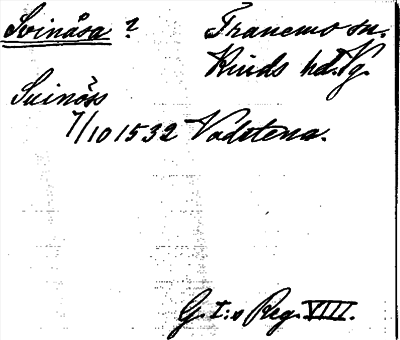 Svinåsa ? Tranemo sn.
Kinds hd. Vg.
Suinåss
7/10 1532 Vadstena.
G. I:s Reg. VIII.